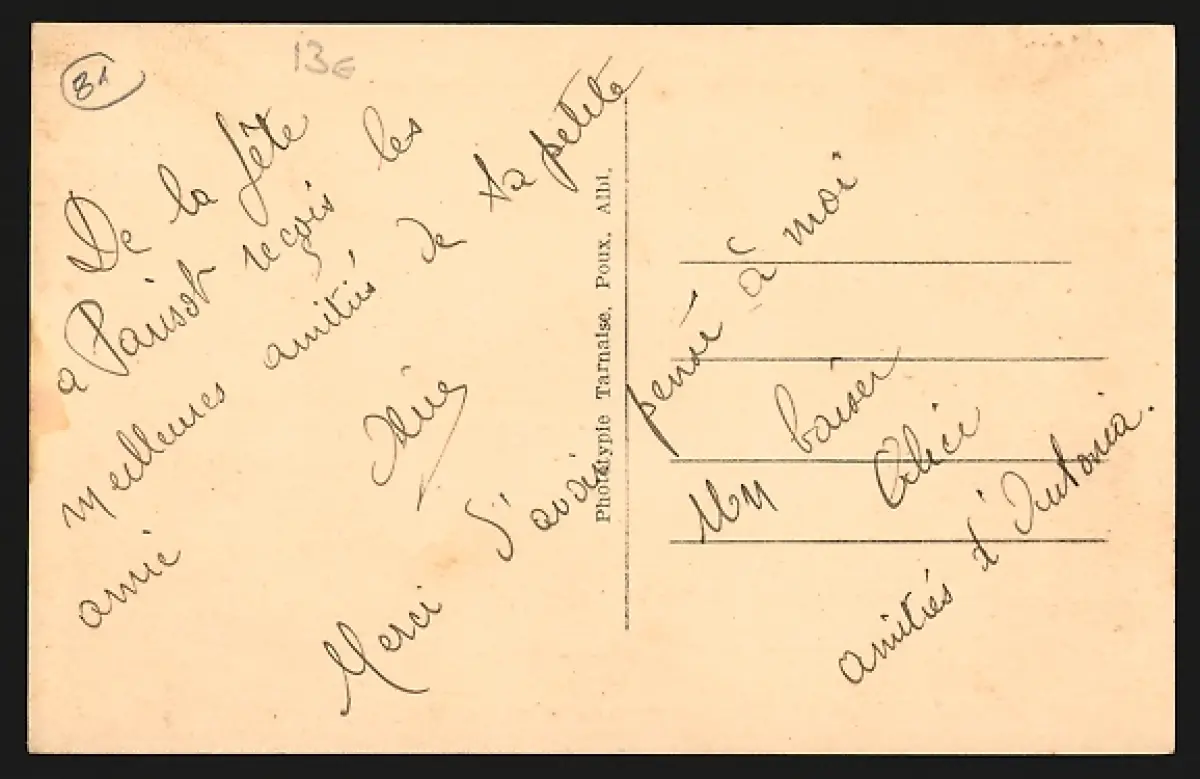 81
13€
De la fête
a Parisot reçois les
meilleures amitiés de ta petite
amie
Merci d'avoir pensé à moi
Un baiser
Alice
amitiés d'Antonia.
Phototypie Tarnaise. Poux. Albi.